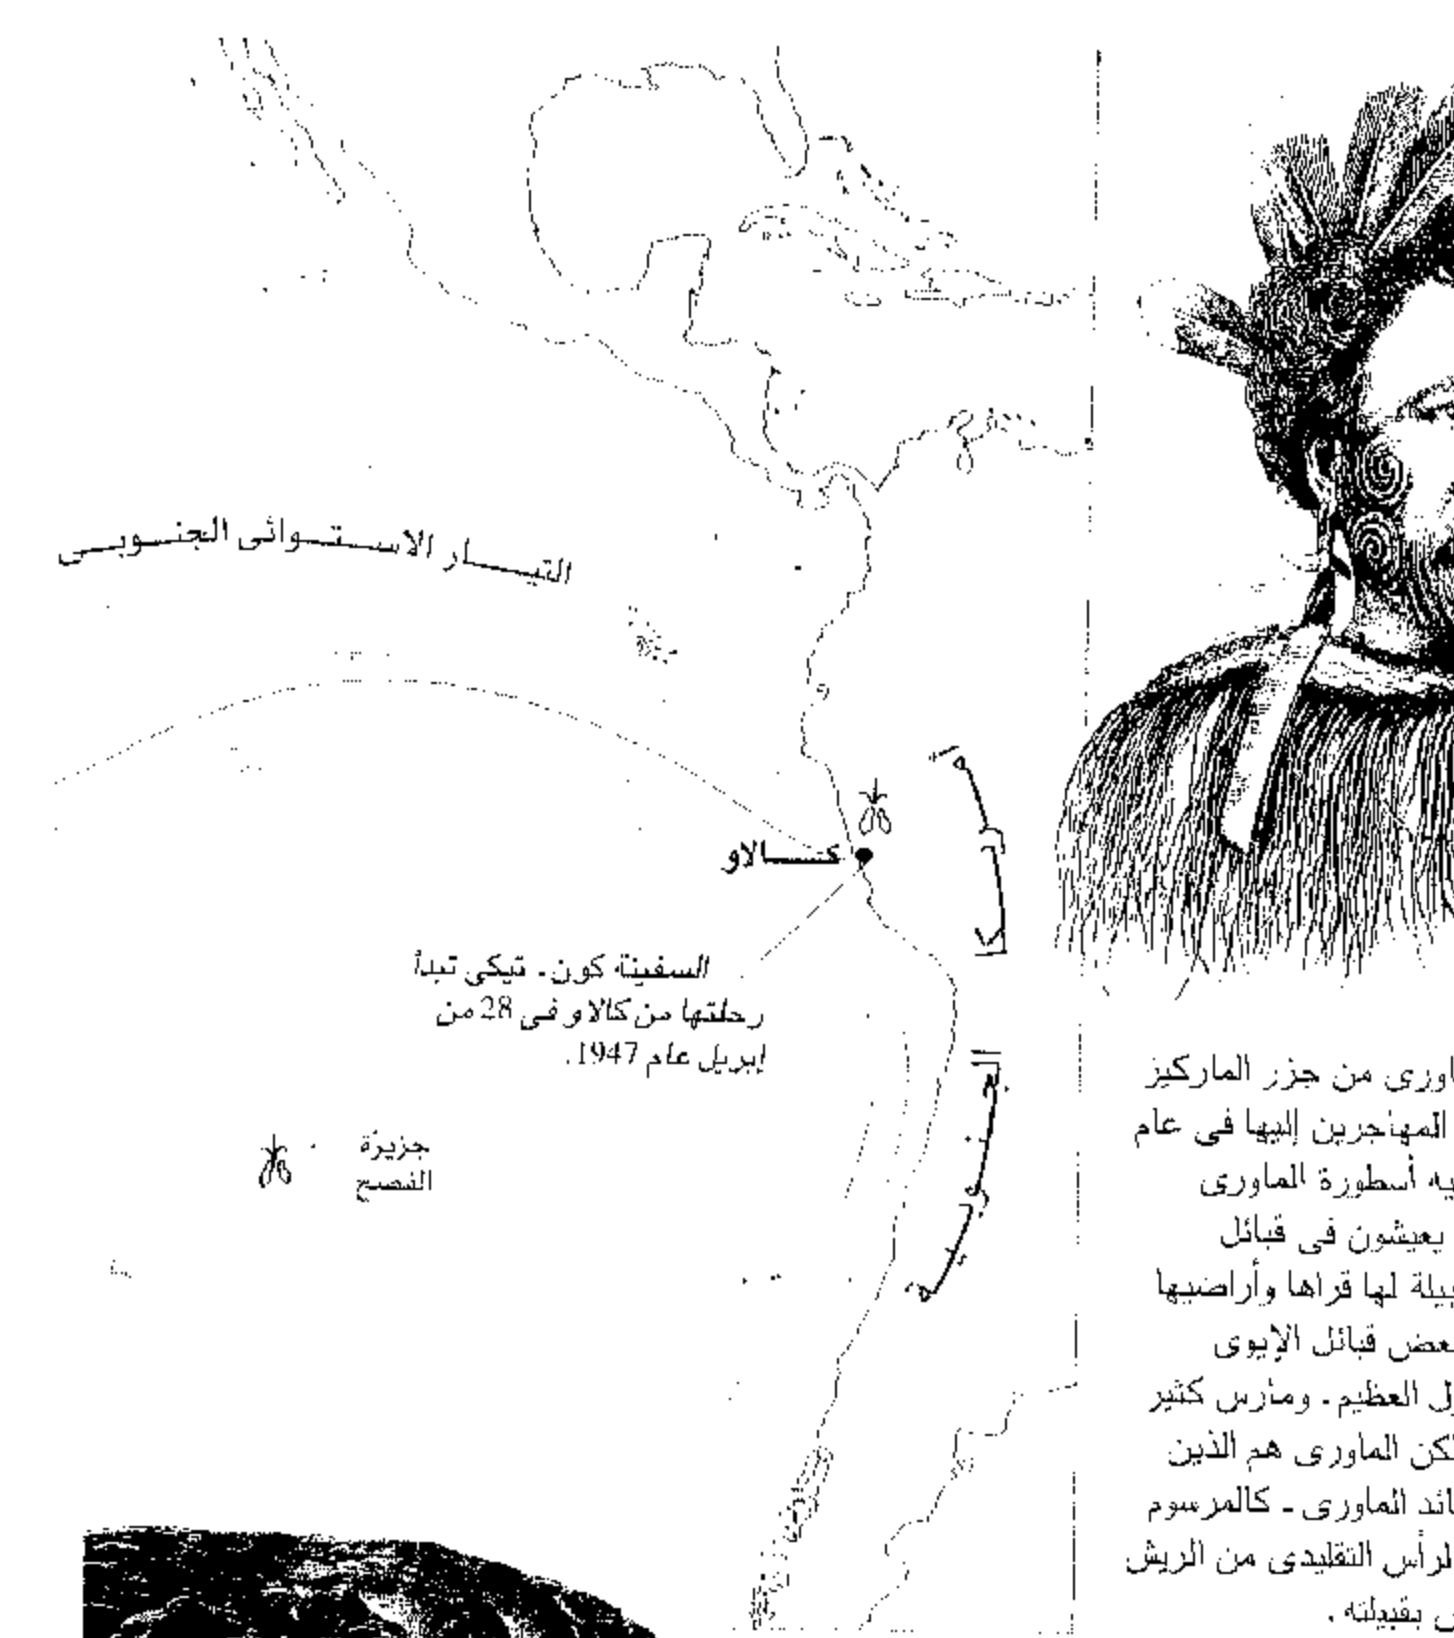 التيـــار الاســـتـــوائى الجنـــوبـــى
أمريكا
كـــالاو
السفينة كون ـ تيكى تبدأ
رحلتها من كالاو فى 28 من
إبريل عام 1947.
الجنوبية
جزيرة
الفصح
اورى من جزر الماركيز
المهاجرين إليها فى عام
يه أسطورة الماورى
يعيشون فى قبائل
بيلة لها قراها وأراضيها
عض قبائل الإيوى
ل العظيم ـ ومارس كثير
كن الماورى هم الذين
ئد الماورى ـ كالمرسوم
لرأس التقليدى من الريش
بقبيلته .